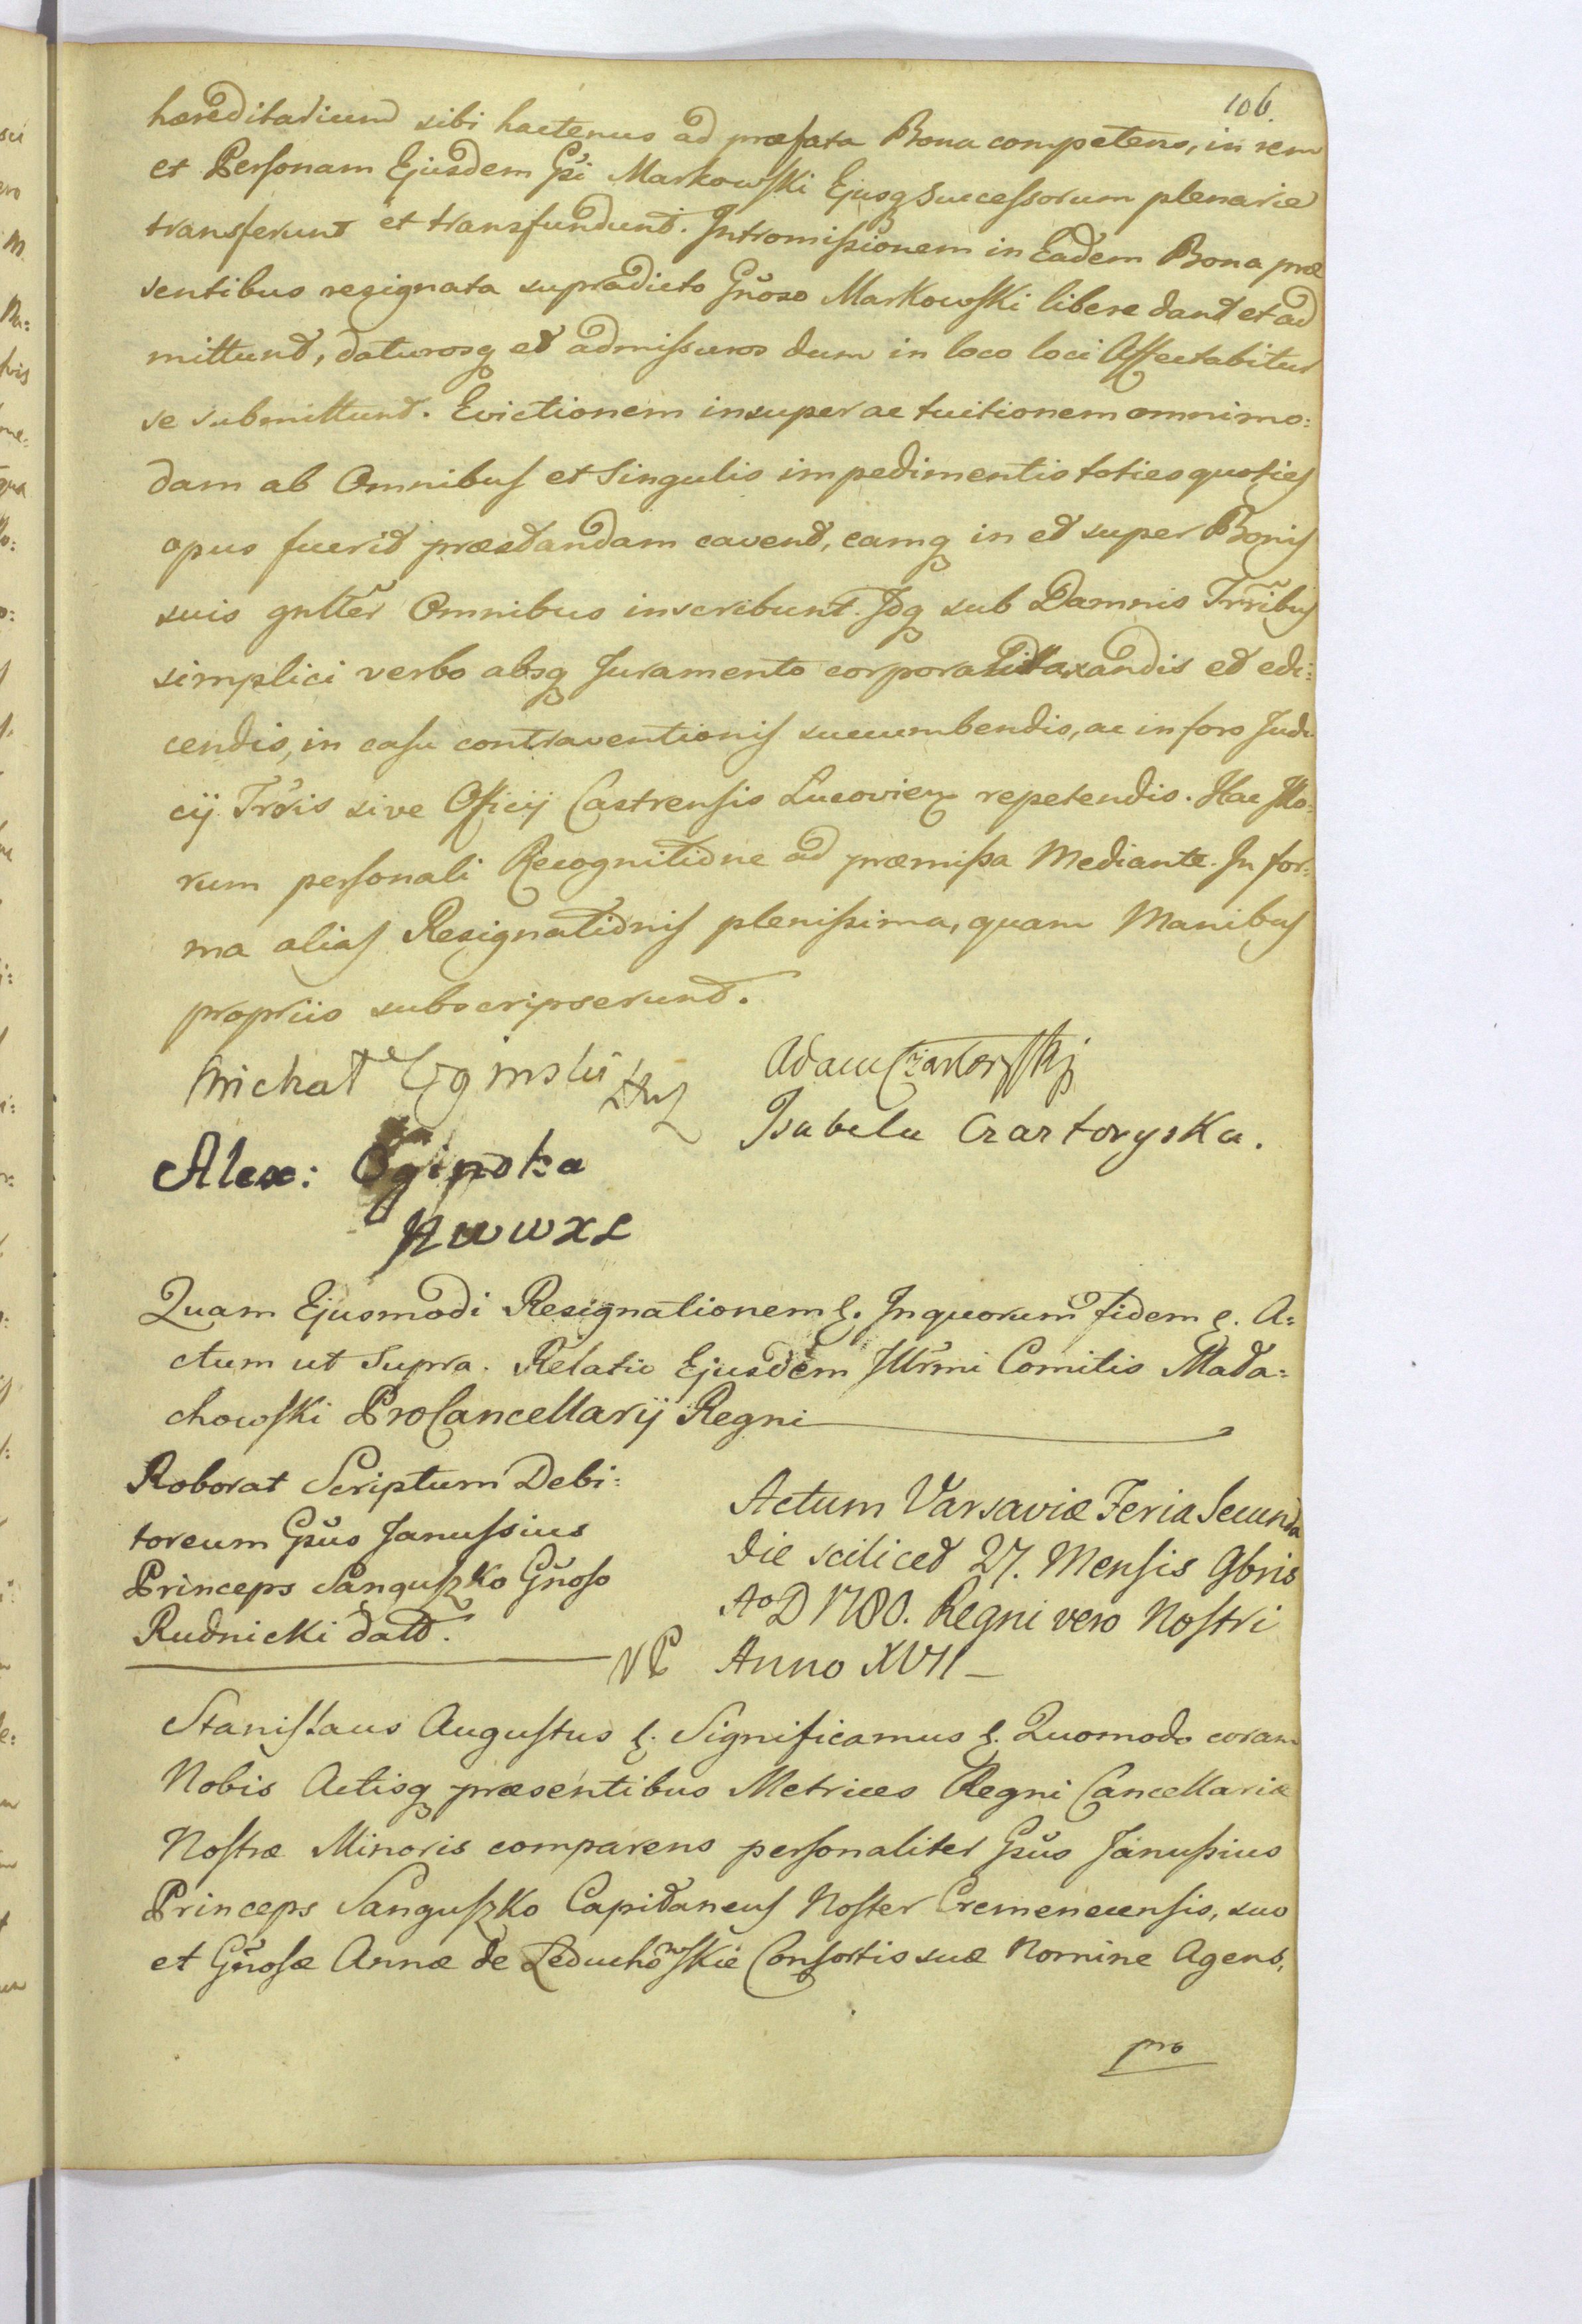 106.
haereditarium sibi hactenus ad praefata Bona competens, in rem
et Personam Ejusdem Gsi Markowski Ejusq Successorum plenarie
transferunt et transfundunt. Intromissionem in Eadem Bona prae
sentibus resignata supradicto Gnoso Markowski libere dant et ad
mittunt, daturosq et admissuros dum in loco loci Affectabitur
se submittunt. Evictionem insuper ac tuitionem omnimo:
dam ab Omnibus et Singulis impedimentis toties quoties
opus fuerit praestandam cavent, eamq in et super Bonis
suis gnlter Omnibus inscribunt. Idq sub Damnis Trribus
simplici verbo absq Juramento corporali taxandis et edi:
cendis, in casu contraventionis succumbendis, ac in foro Judi
cij Trris sive Officij Castrensis Lucovien repetendis. Hac Illo:
rum personali Recognitione ad praemissa Mediante. In for:
ma alias Resignationis plenissima, quam Manibus
propriis subscripserunt.
Michał Oginski
Adam Czartoryskj
Isabela Czartoryska.
Alex: Oginska
HWWXL
Quam Ejusmodi Resignationem &. In quorum fidem &. A:
ctum ut Supra. Relatio Ejusdem Illrmi Comitis Mała:
chowski ProCancellarij Regni
Roborat Scriptum Debi:
toreum Gsus Janussius
Princeps Sanguszko Gnoso
Rudnicki dató.
Actum Varsaviae Feria Secunda
die scilicet 27. Mensis 9bris
Ao D 1780. Regni vero Nostri
VP Anno XVII
Stanislaus Augustus &. Significamus &. Quomodo coram
Nobis Actisq praesentibus Metrices Regni Cancellariae
Nostrae Minoris comparens personaliter Gsus Janussius
Princeps Sanguszko Capitaneus Noster Cremenecensis, suo
et Gnosae Annae de Leduchowskie Consortis suae Nomine Agens,
pro